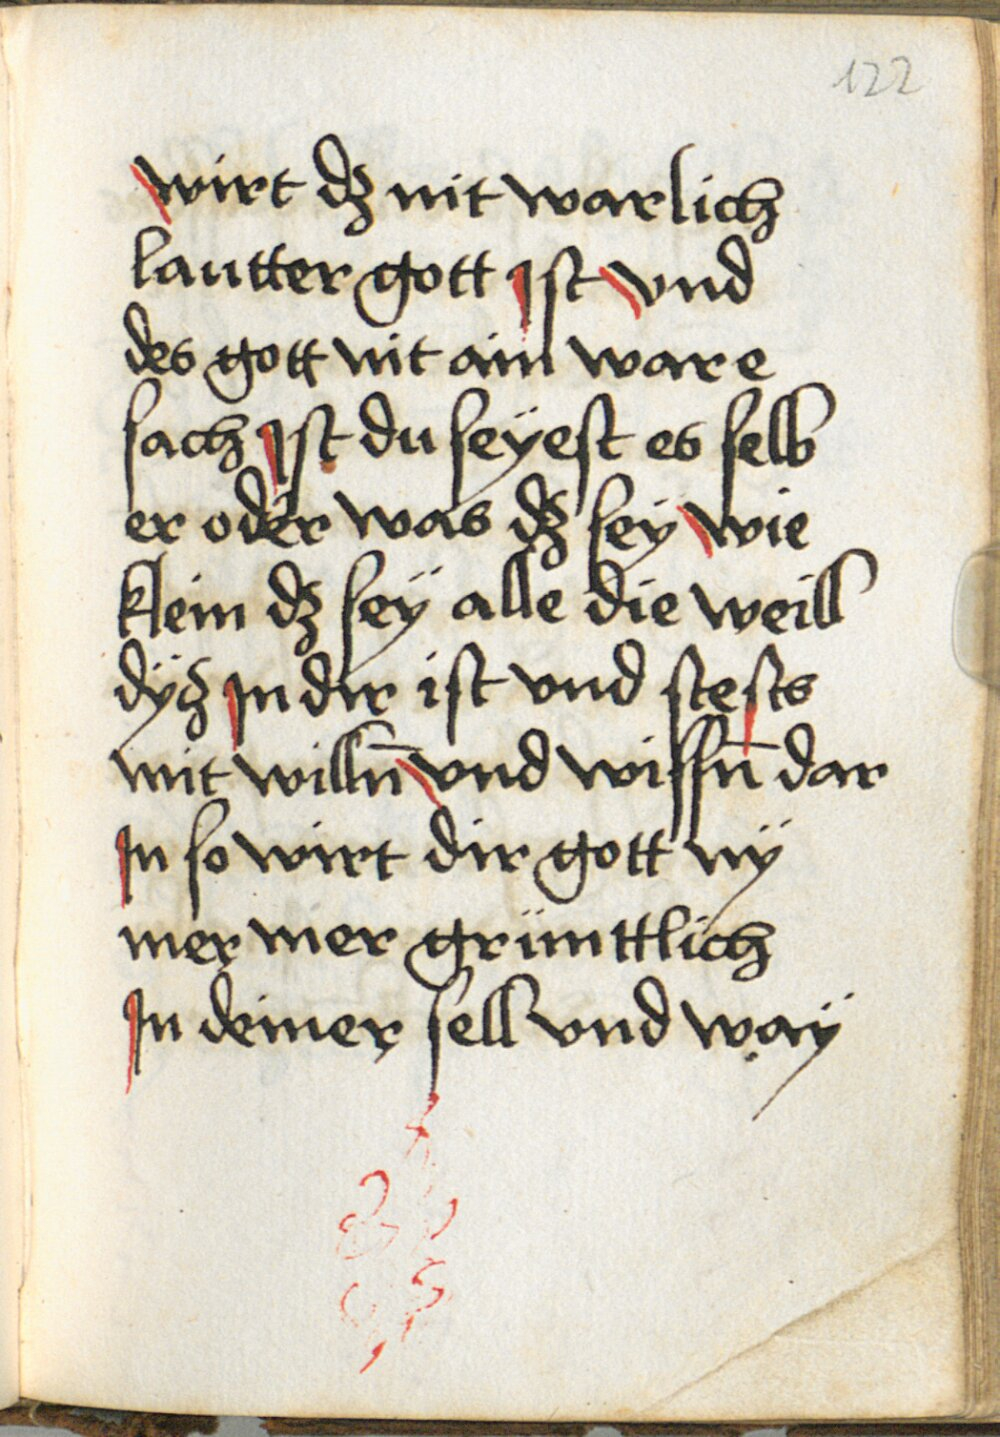 122
wirt dz nit warlich
lautter gott Ist vnd
des gott nit ain ware
sach Ist du seÿest es selb
er oder was dz seÿ wie
klein dz seÿ alle die weill
dÿz In dir ist vnd stests
mit willn̄ vnd wissn̄ dar
In so wirt dir gott nÿ
mer mer grüntlich
In deiner sell vnd waÿ